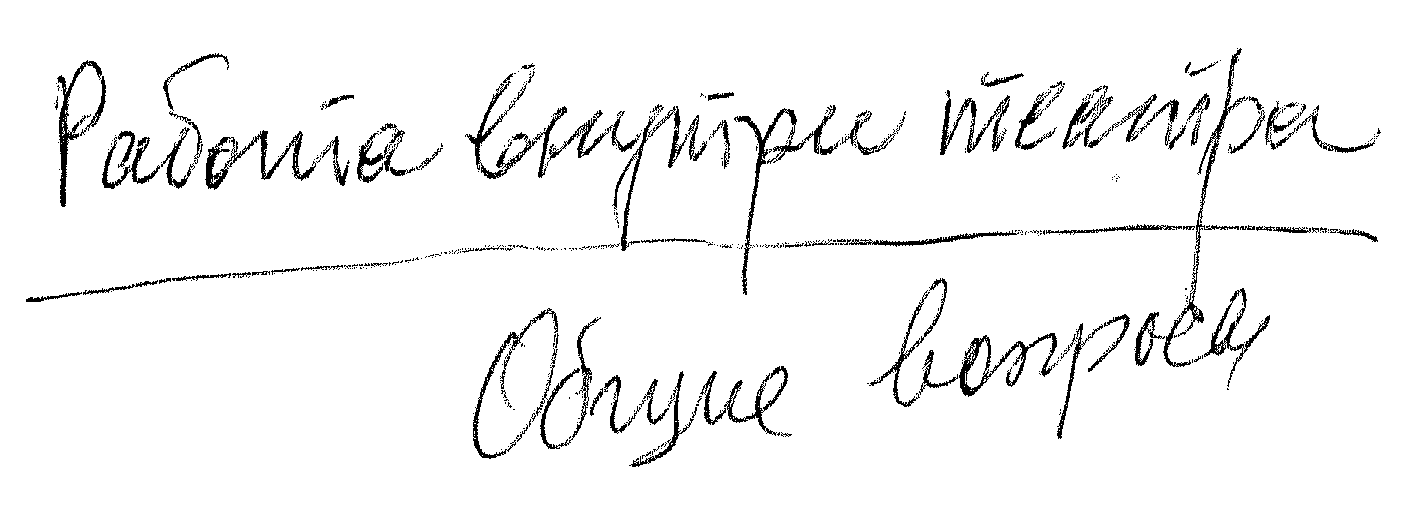 Работа внутри театра
Общие вопросы